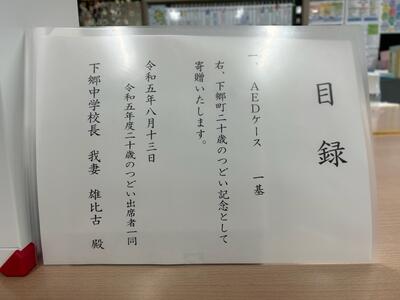 目録
一、AEDケース 一基
右、下郷町二十歳のつどい記念として
寄贈いたします。
令和五年八月十三日
令和五年度二十歳のつどい出席者一同
下郷中学校長 我妻 雄比古 殿